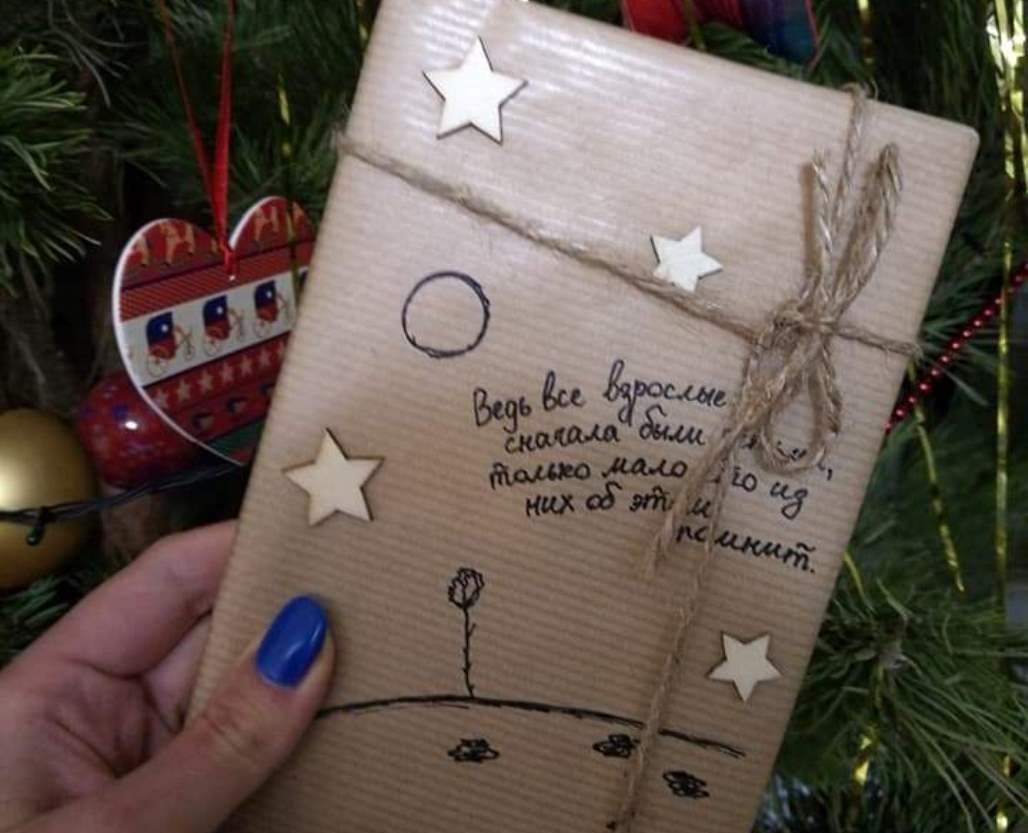 Ведь все взрослые
сначала были
только мало из
них об этом
помнит.